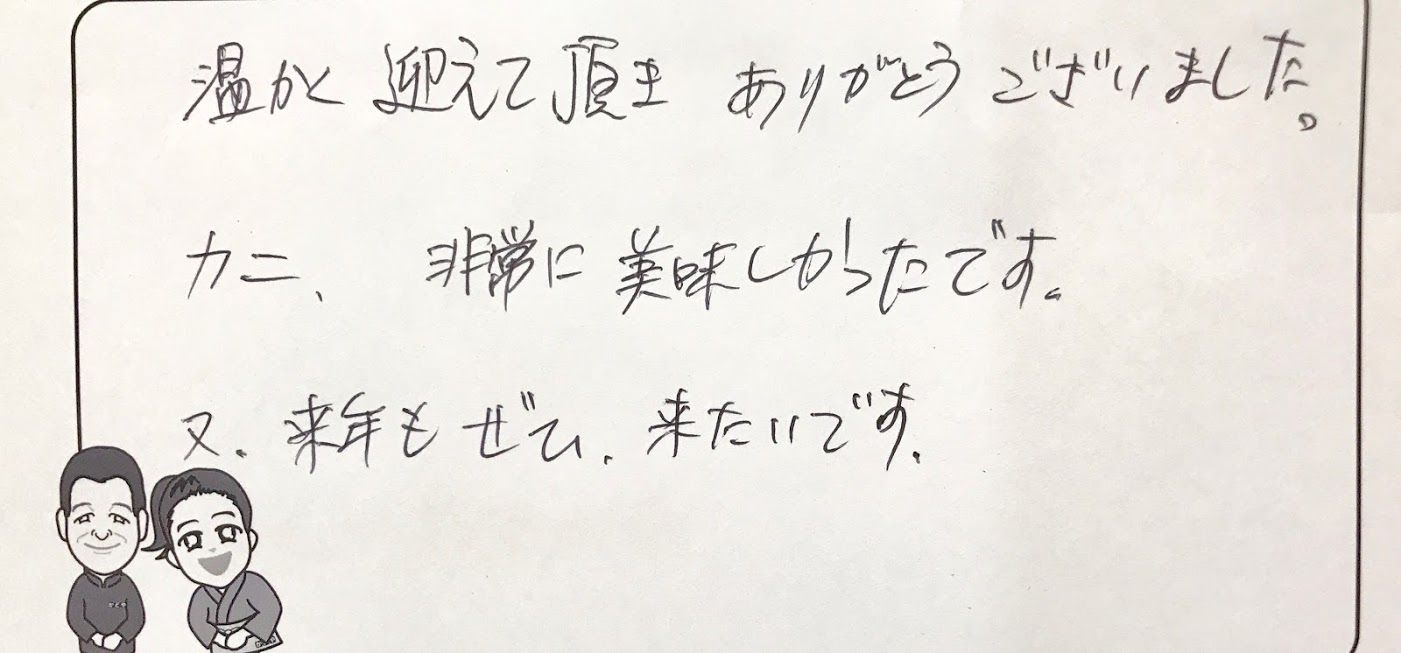 温かく迎えて頂き ありがとうございました。
カニ、 非常に美味しかったです。
又、来年もぜひ、来たいです。